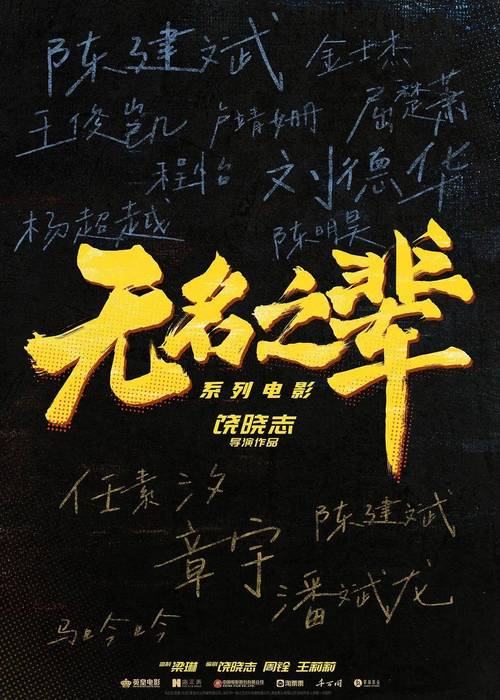 陈建斌 金士杰
王俊凯 卢靖姗 屈楚萧
程怡 刘德华
杨超越 陈明昊
无名之辈
系列电影
饶晓志
导演作品
任素汐 陈建斌
章宇 潘斌龙
马吟吟
监制 梁琳 编剧 饶晓志 周铨 王莉莉
英皇电影 淘票票